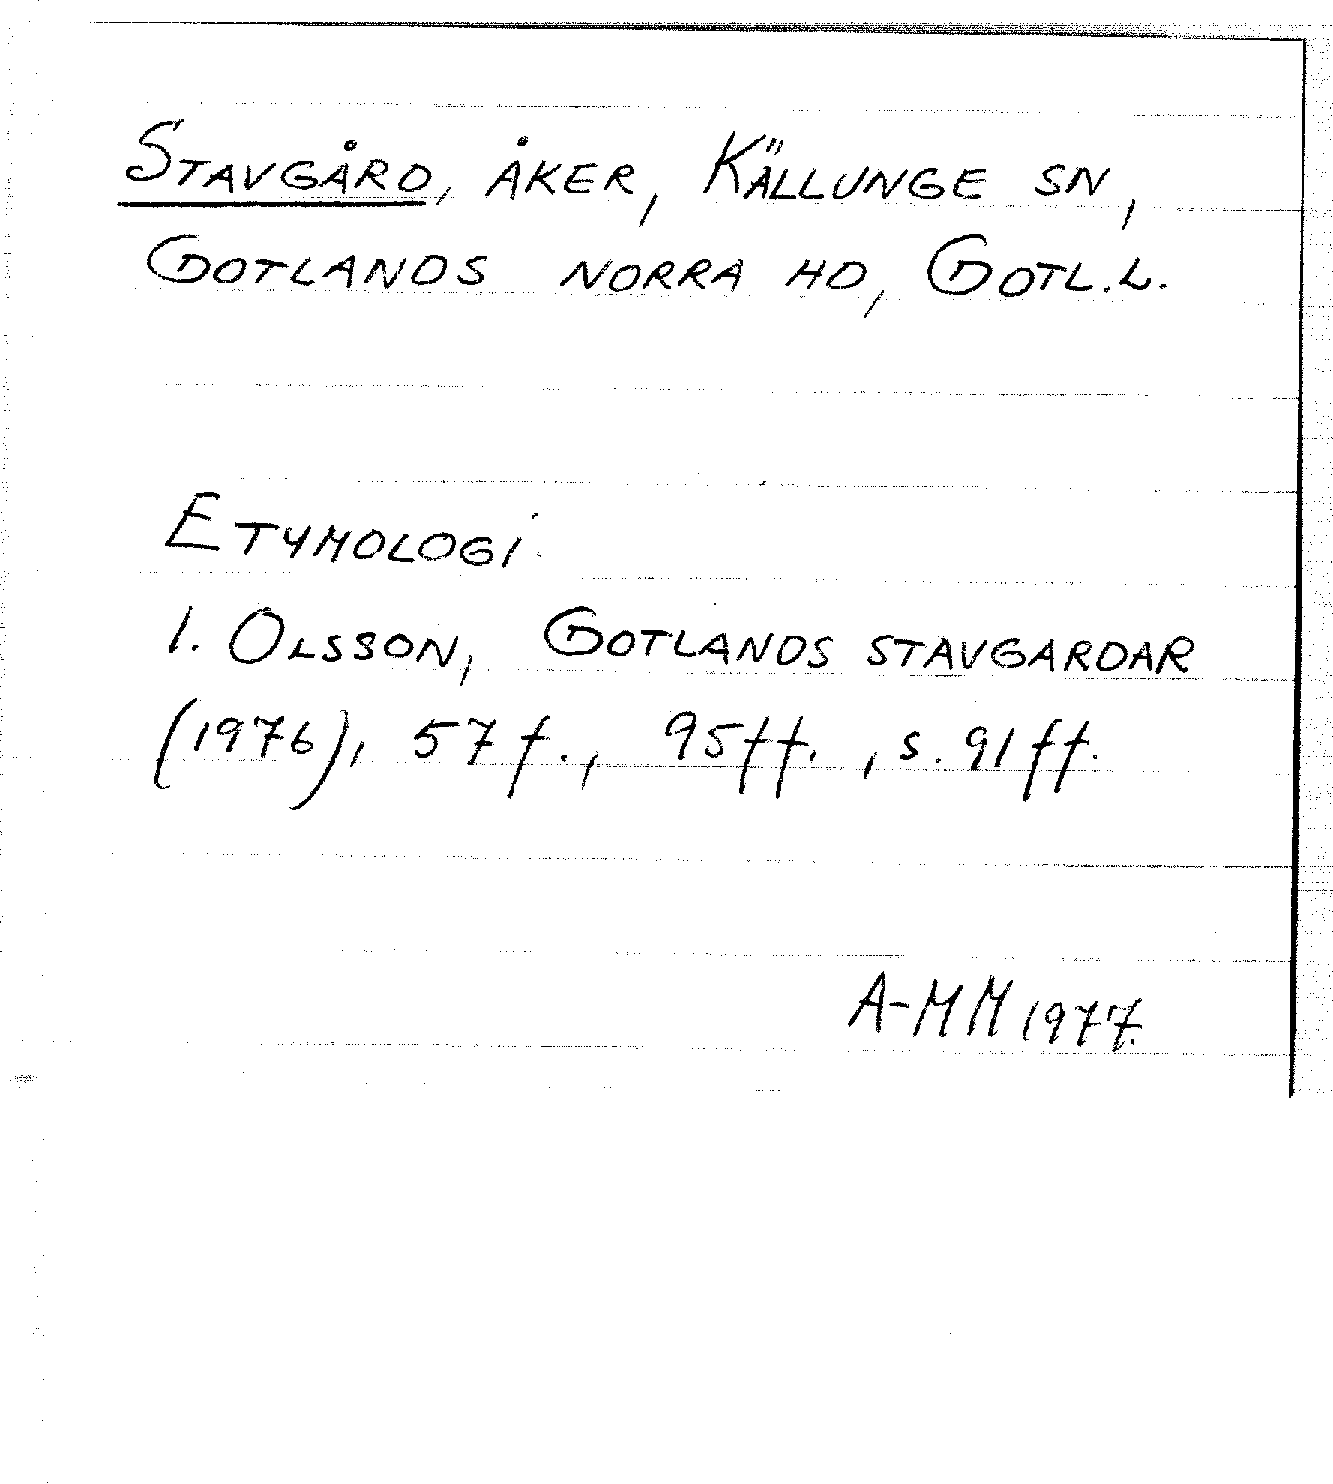 STAVGÅRD, ÅKER, KÄLLUNGE SN,
GOTLANDS NORRA HD, GOTL.L.
ETYMOLOGI
I. OLSSON, GOTLANDS STAVGARDAR
(1976), 57 f., 95ff., s. 91 ff.
A-MM 1977.